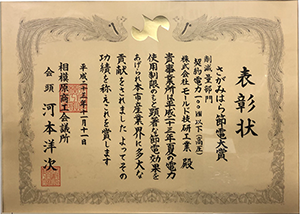 表彰状
さがみはら節電大賞
削減量部門
契約電力一〇〇kW以下(高圧)
株式会社 モールド技研工業 殿
貴事業所は平成二十三年夏の電力
使用制限のもと顕著な節電効果を
あげられ本市産業界に多大な
貢献をされました よってその
功績を称えこれを賞します
平成二十三年十一月十一日
相模原商工会議所
会頭 河本洋次